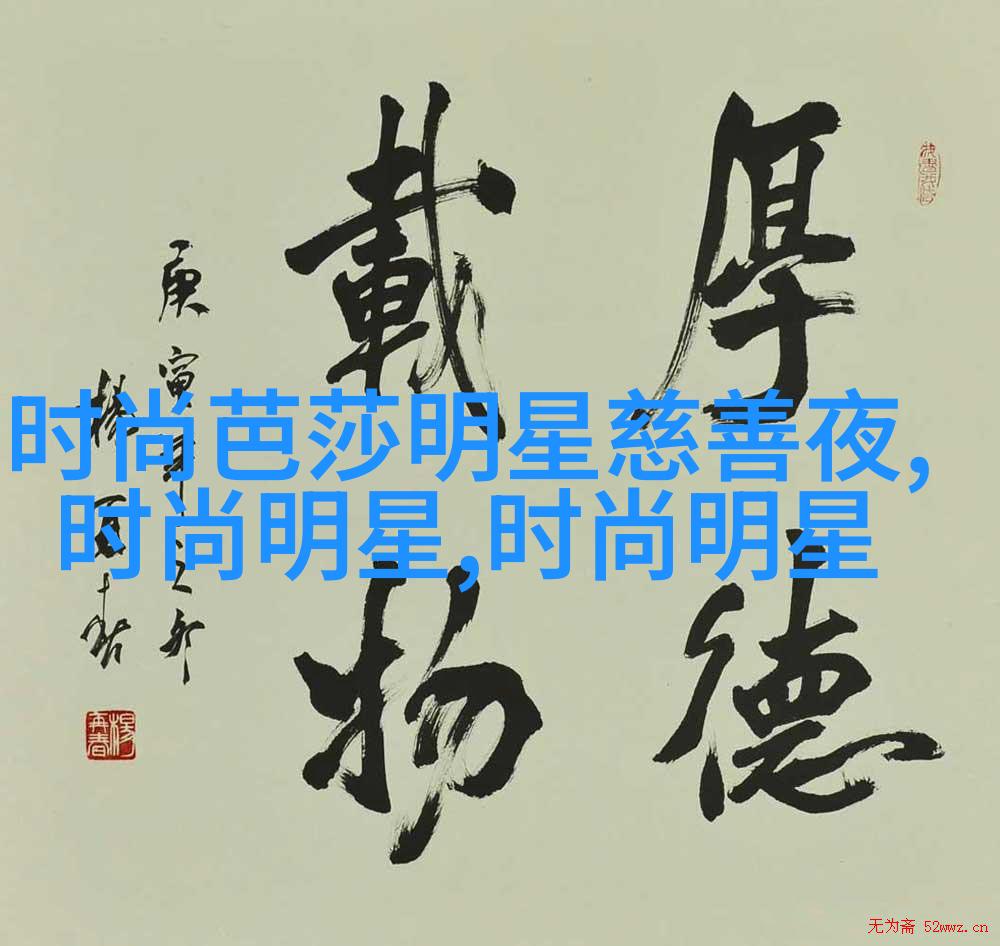 厚德
載物
庚寅年
楊再春
楊再春
时尚芭莎明星慈善夜,
时尚明星,时尚明星
无为斋 52wwz.cn